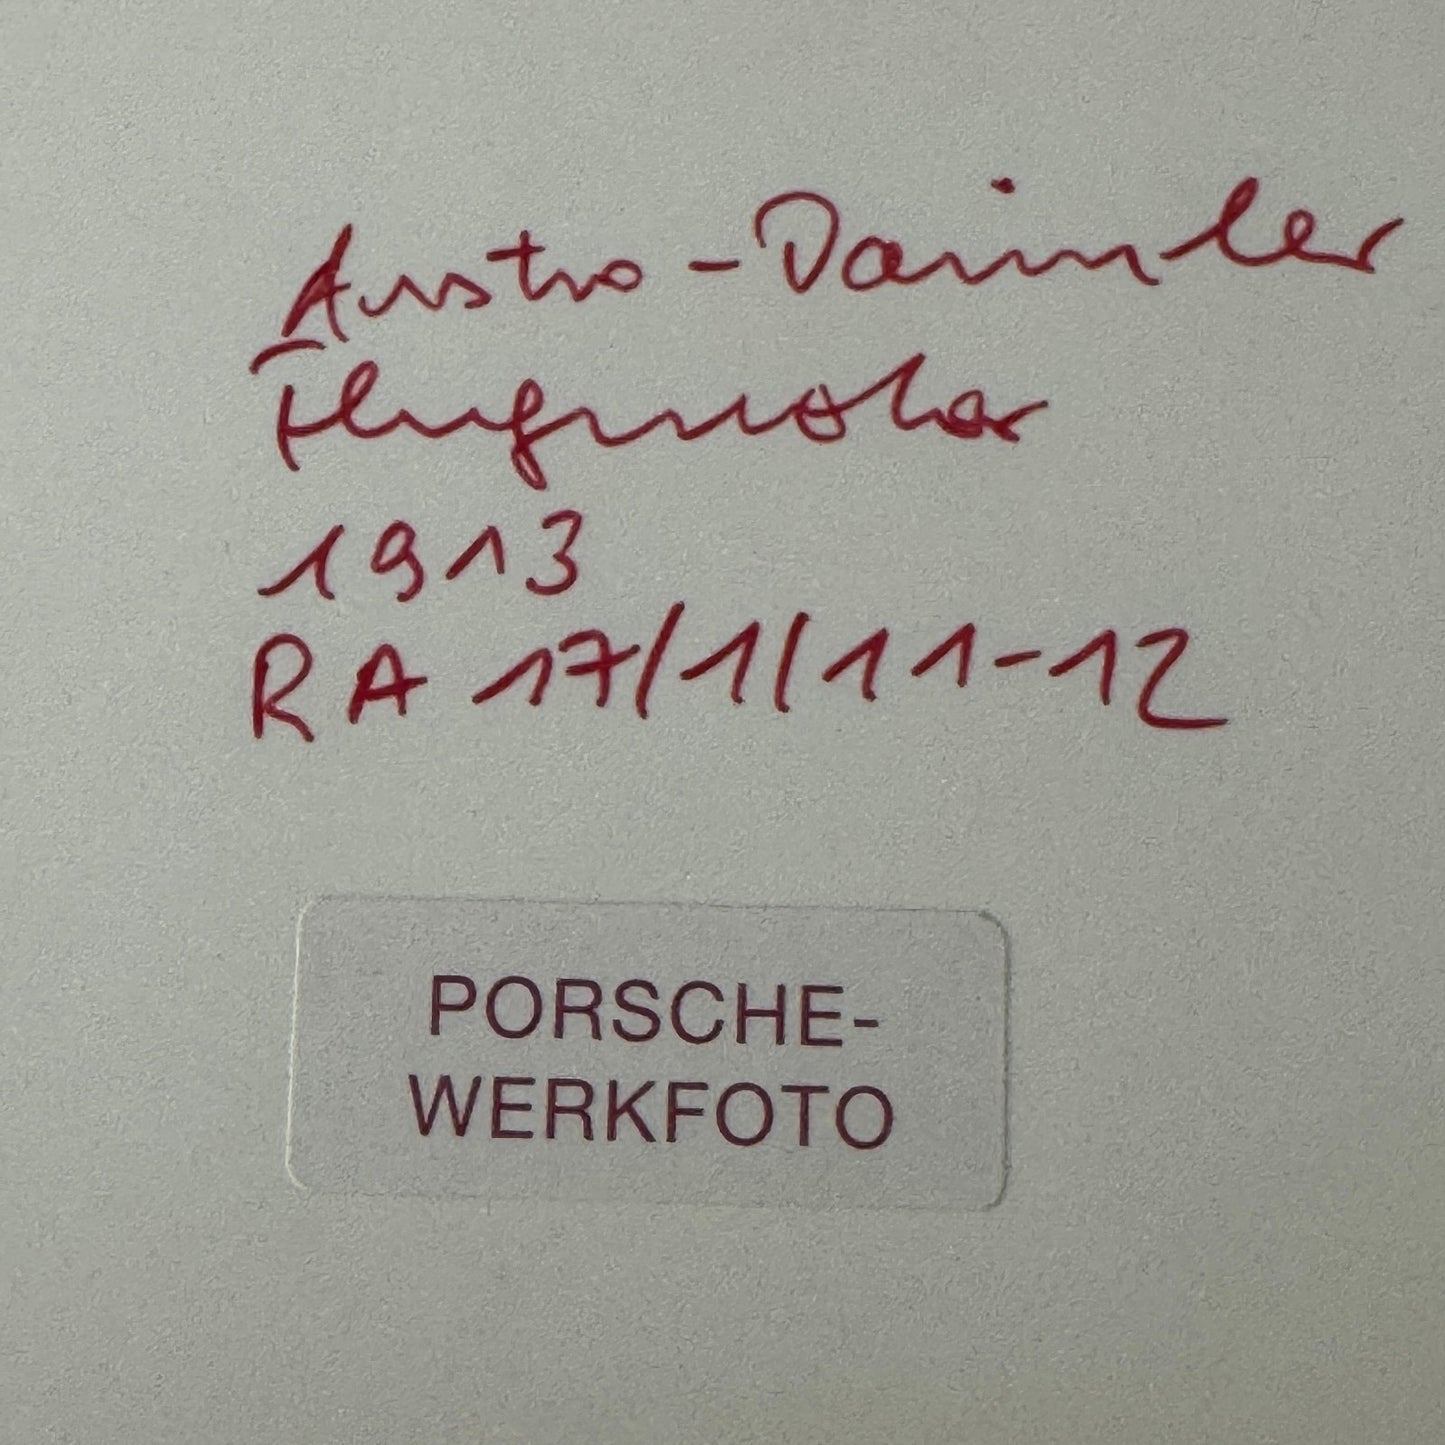 Austro-Daimler
Flugmotor
1913
RA 17/1/11-12
PORSCHE-
WERKFOTO